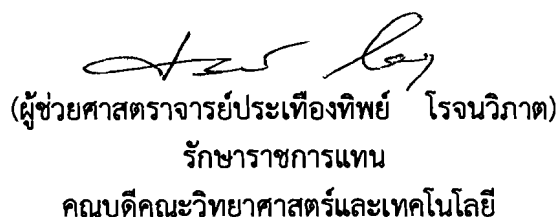 (ผู้ช่วยศาสตราจารย์ประเทืองทิพย์ โรจนวิภาต)
รักษาราชการแทน
คณบดีคณะวิทยาศาสตร์และเทคโนโลยี